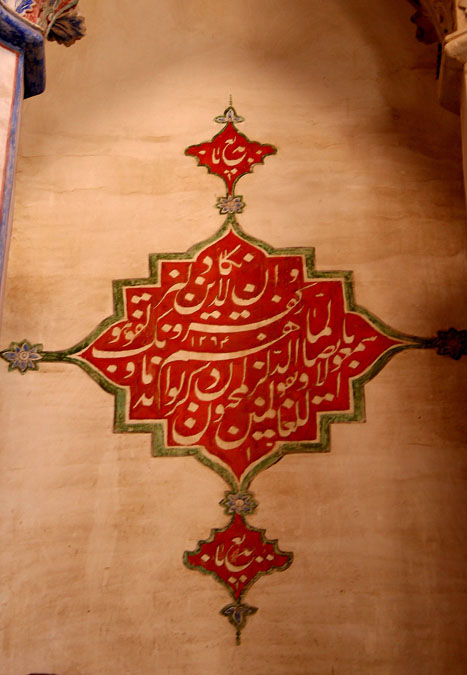 وان يكاد الذين كفروا ليزلقونك بابصارهم
لما سمعوا الذكر ويقولون انه لمجنون
وما هو الا ذكر للعالمين
١٢٦٢